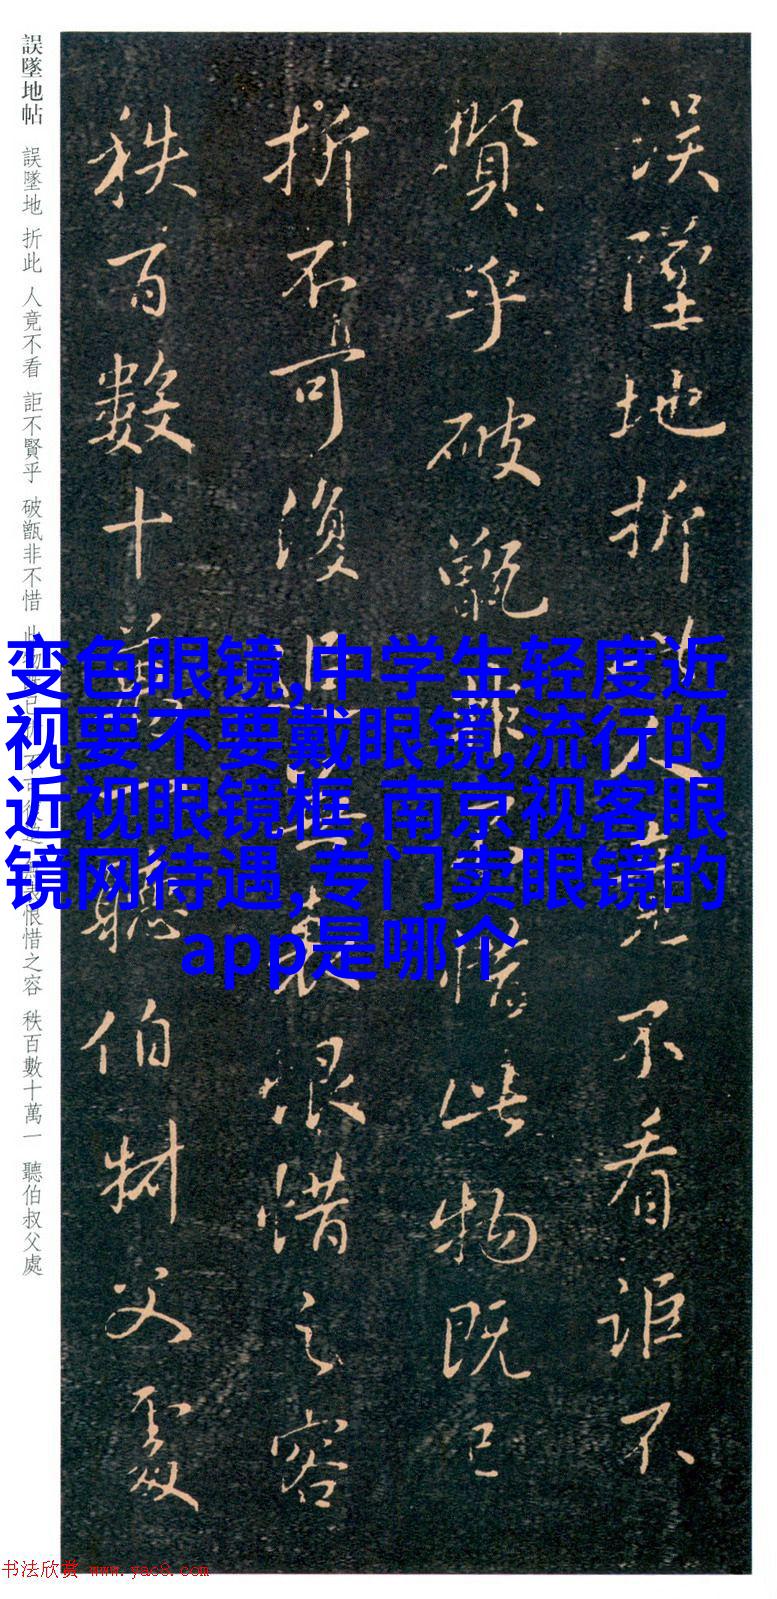 誤墜地折人不看詎不
賢乎破甑惜此物既已
折不可復恨惜之容
秩百數十聽伯叔父處
誤墜地帖 誤墜地 折此 人竟不看 詎不賢乎 破甑非不惜 此物 恨惜之容 秩百數十萬一 聽伯叔父處
变色眼镜,中学生轻度近
视要不要戴眼镜,流行的
近视眼镜框,南京视客眼
镜网待遇,专门卖眼镜的
app是哪个
书法欣赏 www.yac8.com